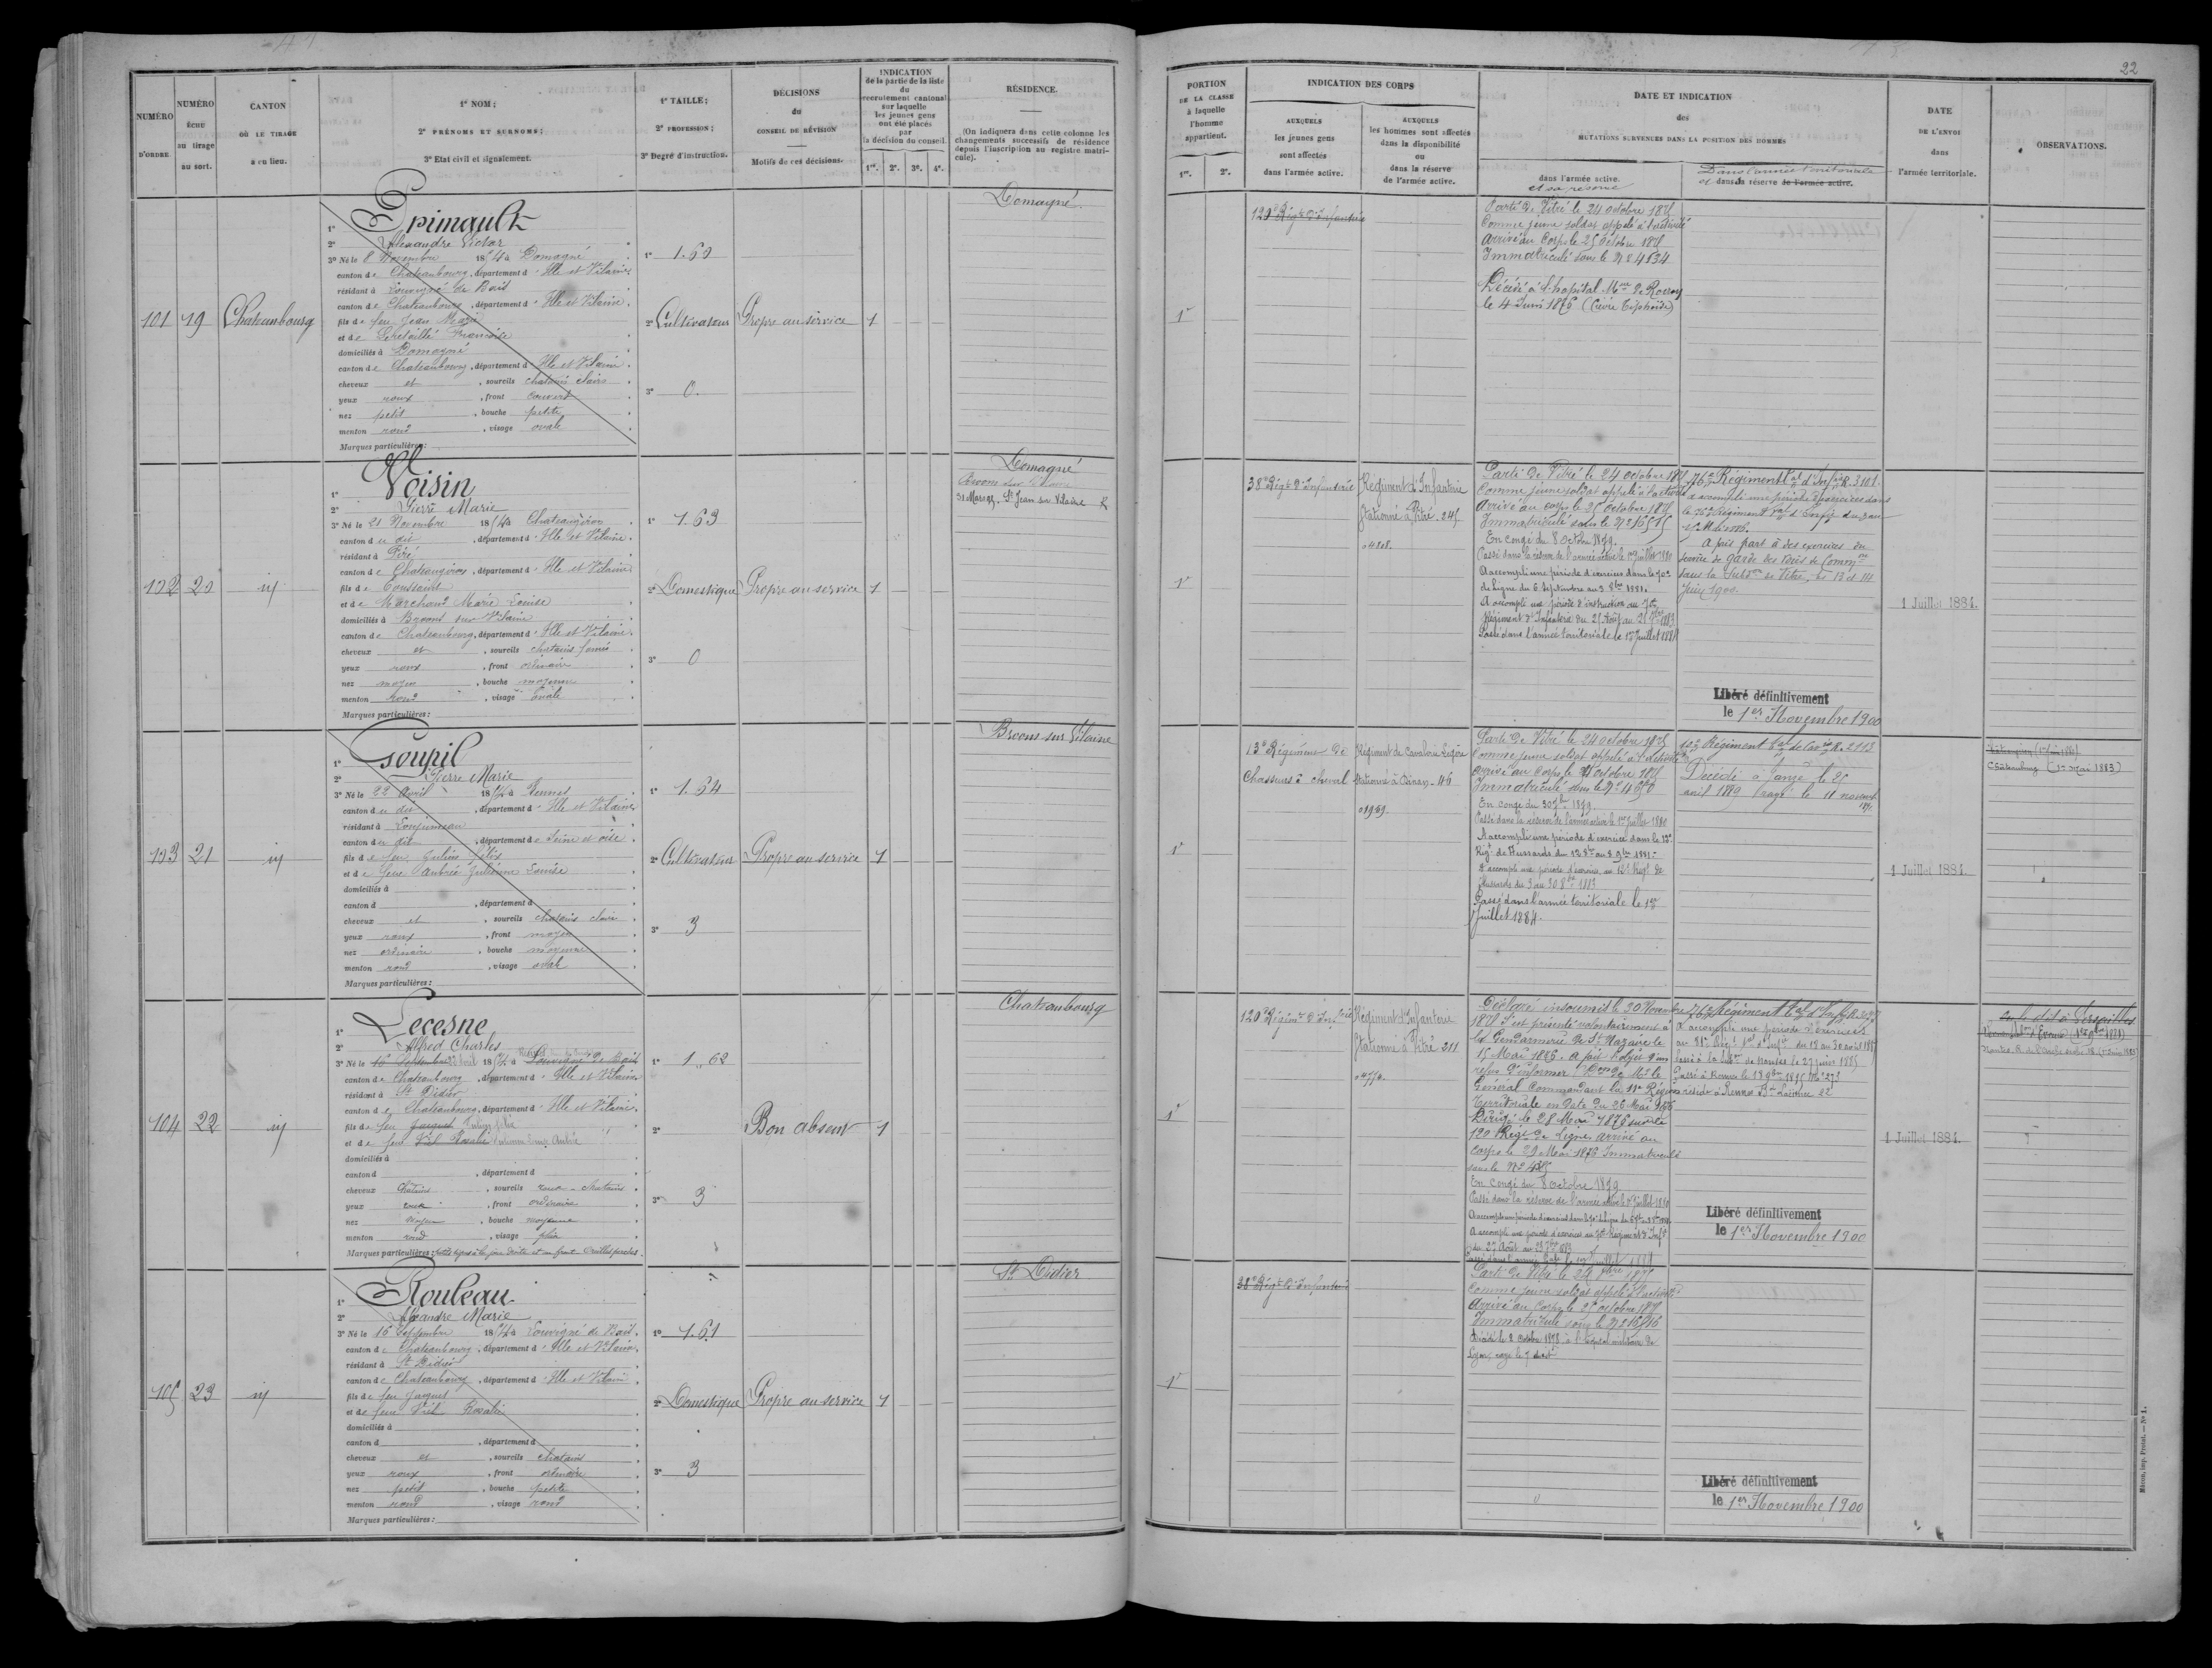 22
NUMÉRO
D'ORDRE.
NUMÉRO
échu
au tirage
au sort.
CANTON
OÙ LE TIRAGE
a eu lieu.
1° NOM;
2° PRÉNOMS ET SURNOMS;
3° Etat civil et signalement.
1° TAILLE;
2° PROFESSION;
3° Degré d'instruction.
DÉCISIONS
du
CONSEIL DE RÉVISION
Motifs de ces décisions.
INDICATION
de la partie de la liste
du
recrutement cantonal
sur laquelle
les jeunes gens
ont été placés
par
la décision du conseil.
1re. 2e. 3e. 4e.
RÉSIDENCE.
(On indiquera dans cette colonne les
changements successifs de résidence
depuis l'inscription au registre matri-
cule).
PORTION
DE LA CLASSE
à laquelle
l'homme
appartient.
1re. 2e.
INDICATION DES CORPS
AUXQUELS
les jeunes gens
sont affectés
dans l'armée active.
AUXQUELS
les hommes sont affectés
dans la disponibilité
ou
dans la réserve
de l'armée active.
DATE ET INDICATION
des
MUTATIONS SURVENUES DANS LA POSITION DES HOMMES
dans l'armée active.
et sa réserve
Dans l'armée territoriale
et dans sa réserve de l'armée active.
DATE
DE L'ENVOI
dans
l'armée territoriale.
OBSERVATIONS.
101 19 Chateaubourg
1° Epinault
2° Alexandre Victor
3° Né le 8 Novembre 1854 à Domagné
canton de Chateaubourg, département d'Ille et Vilaine
résidant à Louvigné de Bais
canton de Chateaubourg, département d'Ille et Vilaine.
fils de feu Jean Marie
et de Françoise
domiciliés à Domagné
canton de Chateaubourg, département d'Ille et Vilaine.
cheveux et, sourcils chatain clairs
yeux roux, front couvert
nez petit, bouche petite
menton rond, visage ovale
Marques particulières:
1° 1.60
2° Cultivateur
3° 0.
Propre au service
1
Domagné.
1e
120e Régt d'Infanterie
Parti de Vitré le 24 octobre 1875
Comme jeune soldat appelé à l'activité
Arrivé au Corps le 25 octobre 1875
Immatriculé sous le N° 4634
Décédé à l'hopital Mre de Rocroy
le 4 Juin 1876 (fièvre Typhoïde)
102 20 id
1° Voisin
2° Pierre Marie
3° Né le 21 Novembre 1854 à Chateaugiron
canton du dit, département d'Ille et Vilaine.
résidant à Piré
canton de Chateaugiron, département d'Ille et Vilaine
fils de Toussaint
et de Marchand Marie Louise
domiciliés à Broons sur Vilaine
canton de Chateaubourg, département d'Ille et Vilaine.
cheveux et, sourcils chatains foncé
yeux roux, front ordinaire
nez moyen, bouche moyenne
menton rond, visage ovale
Marques particulières:
1° 1.63
2° Domestique
3° 0
Propre au service
1
Domagné
Broons sur Vilaine
St Jean sur Vilaine
1e
38e Régt d'Infanterie
Régiment d'Infanterie
Stationné à Vitré. 245
04808.
Parti de Vitré le 24 octobre 1875
Comme jeune soldat appelé à l'activité
Arrivé au corps le 25 octobre 1875
Immatriculé sous le N° 16515
En congé du 8 Octobre 1879.
Passé dans la réserve de l'armée active le 1er Juillet 1880
A accompli une période d'exercices dans le 70e
de Ligne du 6 Septembre au 3 8bre 1881.
A accompli une période d'instruction au 70e
Régiment d'Infanterie du 25 Août au 21 7bre 1883
Passé dans l'armée territoriale le 1er Juillet 1884
76e Régiment Tal d'Infrie R. 3101.
A accompli une période d'exercices dans
A fait part à des exercices du
service de garde des voies de Common
dans la Subdon de Vitré, les 13 et 14
Juin 1900.
Libéré définitivement
le 1er Novembre 1900
1 Juillet 1884.
103 21 id
1° Goupil
2° Pierre Marie
3° Né le 22 Avril 1854 à Rennes
canton du dit, département d'Ille et Vilaine
résidant à Lonjumeau
canton du dit, département de Seine et oise.
fils de feu Julien Félix
et de feue Aubrée Julienne Louise
domiciliés à
canton d, département d
cheveux et, sourcils chatains clairs
yeux roux, front moyen
nez ordinaire, bouche moyenne
menton rond, visage ovale
Marques particulières:
1° 1.64
2° Cultivateur
3° 3
Propre au service
1
Broons sur Vilaine
1e
13e Régiment de
Chasseurs à cheval
Régiment de Cavalerie Légère
Stationné à Dinan. 46
01939.
Parti de Vitré le 24 octobre 1875
Comme jeune soldat appelé à l'activité
Arrivé au Corps le octobre 1875
Immatriculé sous le N°
En congé du 30 7bre 1879.
Passé dans la réserve de l'armée active le 1er Juillet 1880
A accompli une période d'exercice dans le 12e
Régt de Hussards du 12 8bre au 8 9bre 1881.
A accompli une période d'exercices au 12e Régt de
Hussards du 3 au 30 8bre 1883
Passé dans l'armée territoriale le 1er
Juillet 1884.
10e Régiment Tal de Cavie R. 2113
Décédé à Janzé le 25
avril 1889 rayé le 11 novembre
1 Juillet 1884.
Chateaubourg (12 Mai 1883)
104 22 id
1° Lecesne
2° Alfred Charles
3° Né le 16 Septembre 22 Avril 1854 à Rennes Louvigné de Bais
canton de Chateaubourg, département d'Ille et Vilaine
résidant à St Didier
canton de Chateaubourg, département d'Ille et Vilaine.
fils de feu Jacques Julien Félix
et de feue Viel Rosalie Julienne Louise Aubrée
domiciliés à
canton d, département d
cheveux chatains, sourcils chatains
yeux roux, front ordinaire
nez moyen, bouche moyenne
menton rond, visage plein
Marques particulières: petits signes à la joue droite et au front. Oreilles percées.
1° 1.62
2°
3° 3
Bon absent
1
Chateaubourg
1e
120e Régimt d'Infrie
Régiment d'Infanterie
Stationné à Vitré 211
04774.
Déclaré insoumis le 30 Novembre
1875 S'est présenté volontairement à
la Gendarmerie de St Nazaire le
15 Mai 1876. A fait l'objet d'un
refus d'informer Don de Mr le
Général Commandant la 11e Région
Territoriale en date du 26 Mai 1876
Dirigé le 28 Mai 1876 sur le
120 Régt de Ligne, arrivé au
corps le 29 Mai 1876 Immatriculé
sous le N°
En congé du 8 octobre 1879
Passé dans la réserve de l'armée active le 1er Juillet 1880
A accompli une période d'exercices au 70e Régiment d'Infie
du 27 Août au 23 7bre 1883
Passé dans l'armée territ. le 1er Juillet 1884
76e Régiment Tal d'Infrie
A accompli une période d'exercices
au 81e Régt Tal d'Infie du 18 au 30 août 1887
Passé à la subdon de Nantes le 27 Juin 1885
Passé à Rennes le 18 9bre 1895 N° 273
réside à Rennes
Libéré définitivement
le 1er Novembre 1900
1 Juillet 1884.
105 23 id
1° Rouleau
2° Alexandre Marie
3° Né le 16 Septembre 1854 à Louvigné de Bais.
canton de Chateaubourg, département d'Ille et Vilaine.
résidant à St Didier
canton de Chateaubourg, département d'Ille et Vilaine.
fils de feu Jacques
et de feue Viel Rosalie
domiciliés à
canton d, département d
cheveux et, sourcils chatains
yeux roux, front ordinaire
nez petit, bouche petite
menton rond, visage rond
Marques particulières:
1° 1.61
2° Domestique
3° 3
Propre au service
1
St Didier
1e
38e Régt d'Infanterie
Parti de Vitré le 24 8bre 1875
Comme jeune soldat appelé à l'activité
Arrivé au Corps le 25 octobre 1875
Immatriculé sous le N° 16516
Décédé le 8 octobre 1878 à l'hopital militaire de
Lyon, rayé le 9 dudit
Libéré définitivement
le 1er Novembre 1900
Mâcon, imp. Protat. — N° 1.